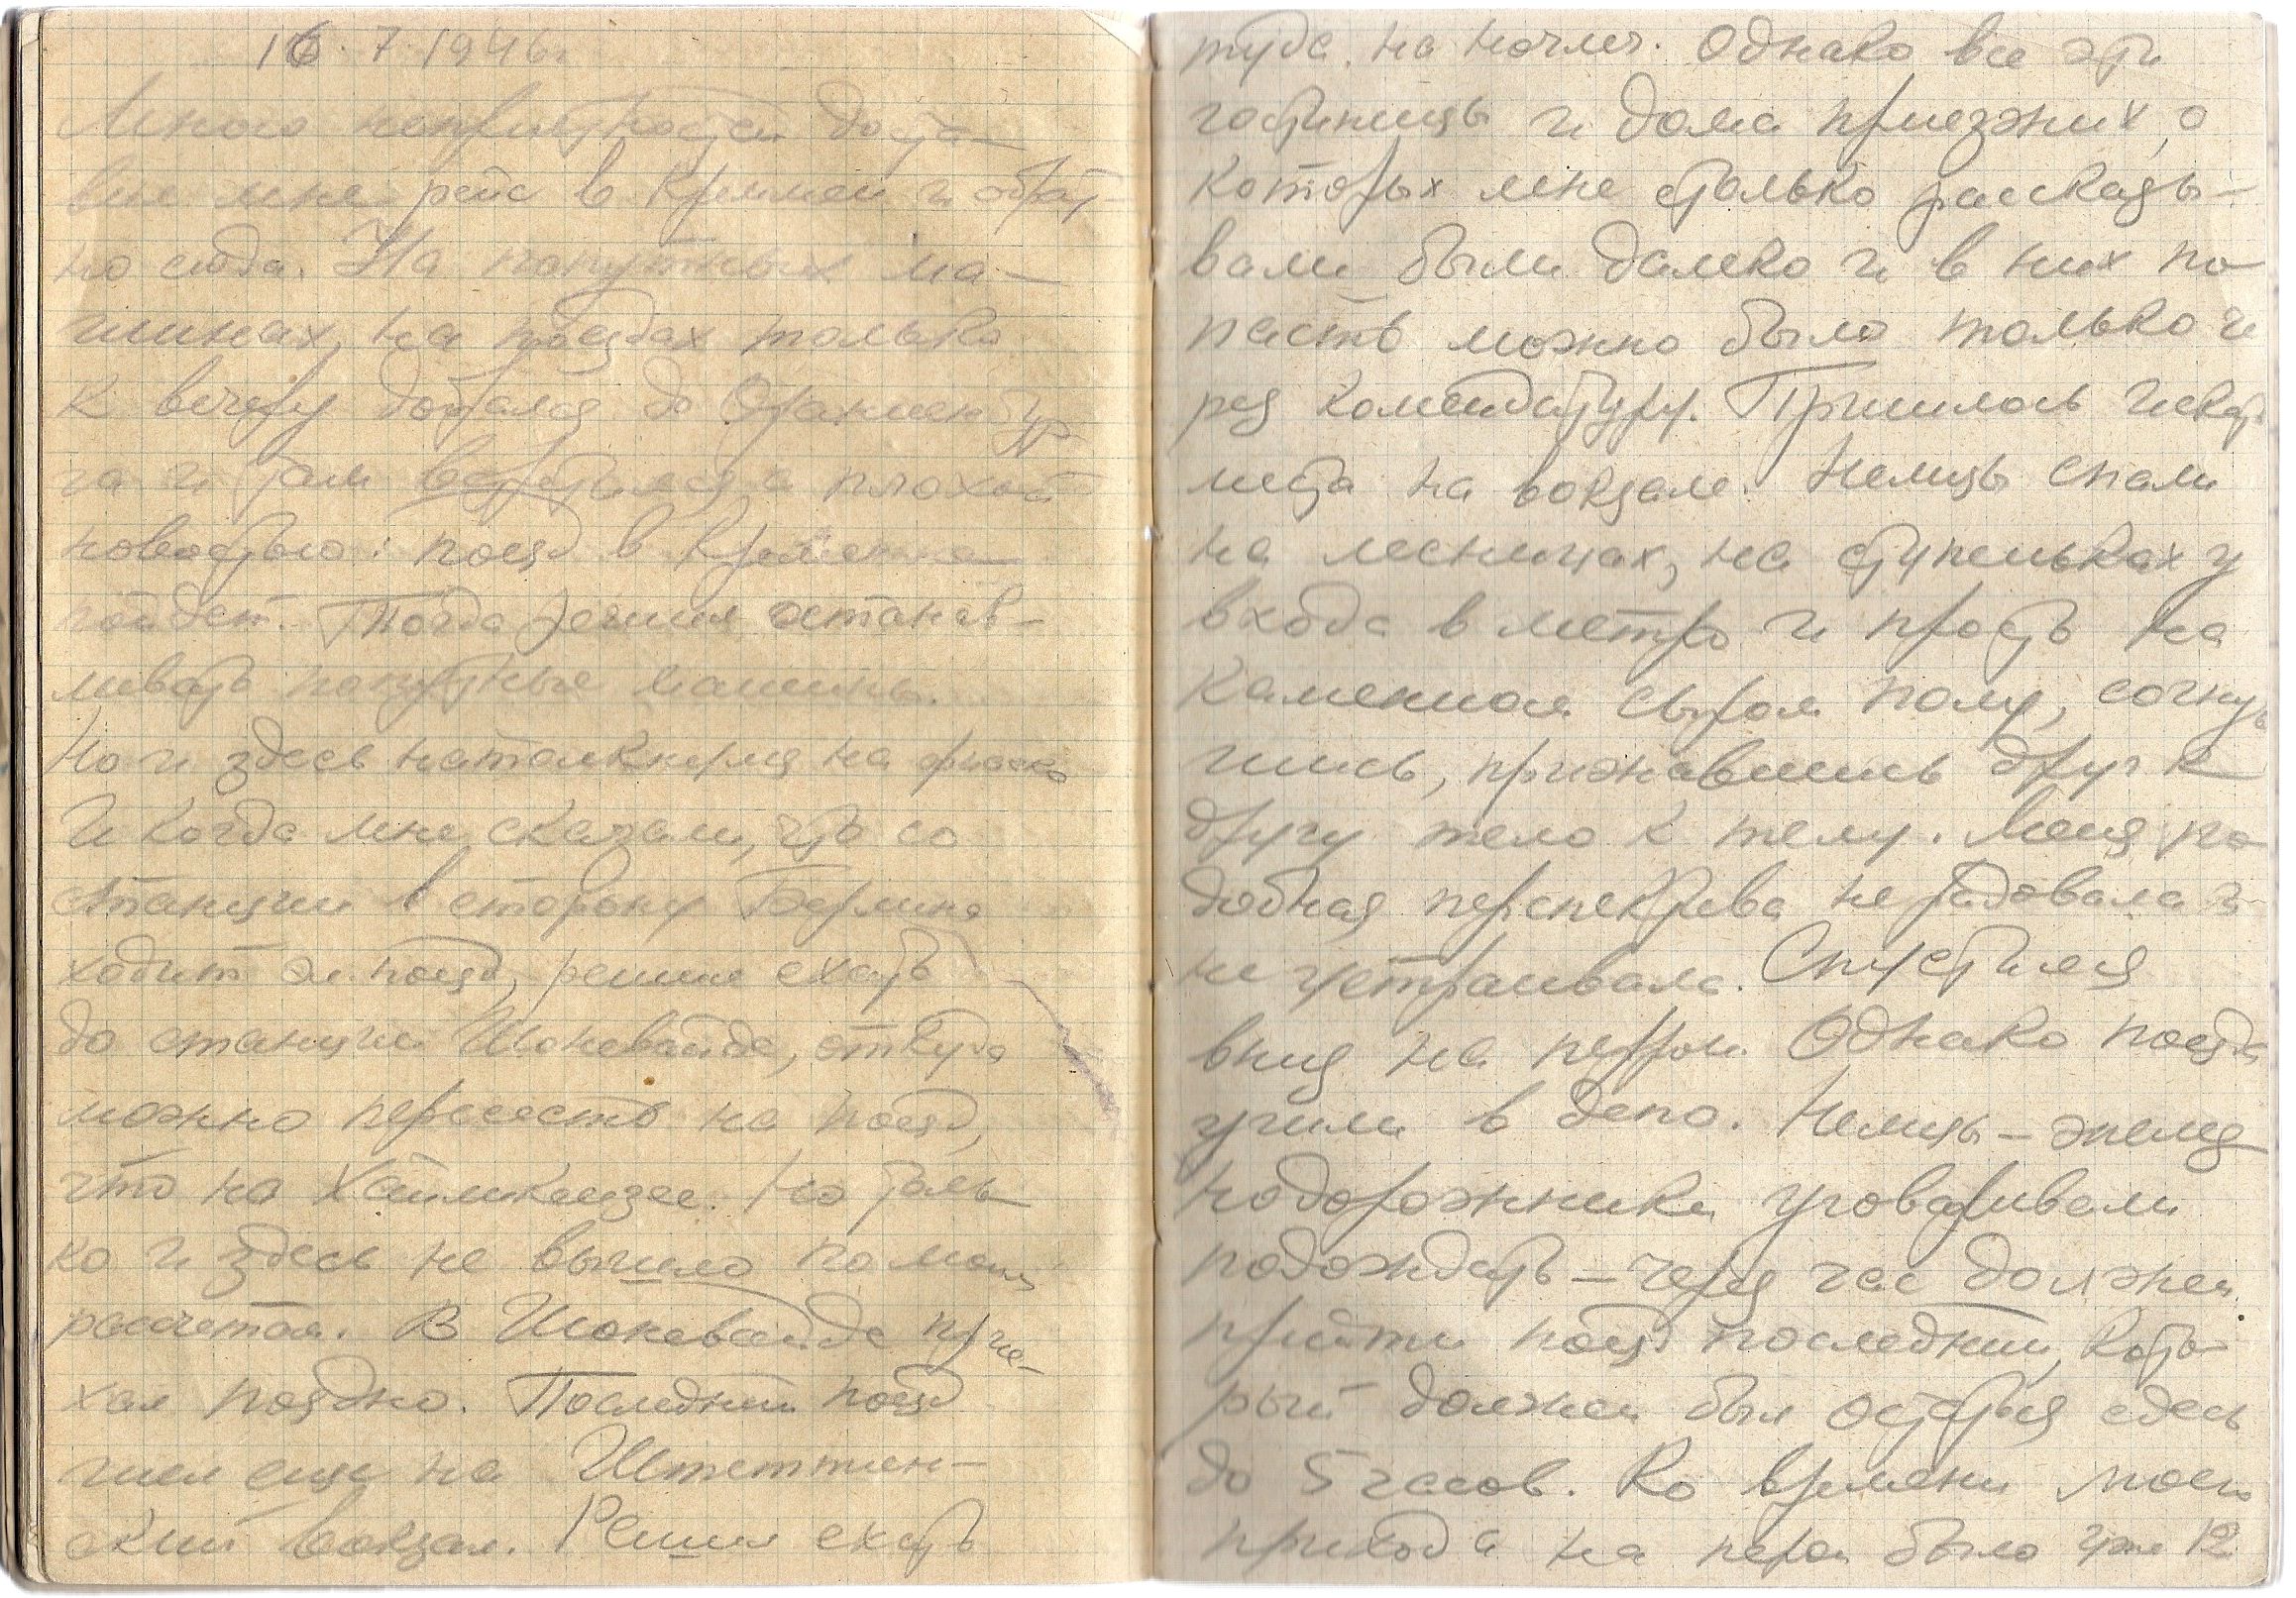 16.7.1946г.
Много неприятностей доста-
вил мне рейс в Креммен и обрат-
но сюда. На попутных ма-
шинах, на поездах только
к вечеру добрался до Ораниенбур-
га и там встретился с плохой
новостью: поезд в Креммен не
пойдет. Тогда решил останав-
ливать попутные машины.
Но и здесь натолкнулся на фиаско
И когда мне сказали, что со
станции в сторону Берлина
ходит эл. поезд, решил ехать
до станции Шоневайде, откуда
можно пересесть на поезд,
что на Хаймкензее. Но толь-
ко и здесь не вышло по моим
рассчетам. В Шоневайде прие-
хал поздно. Последний поезд
шел еще на Штеттин-
ский вокзал. Решил ехать
туда, на ночлег. Однако все эти
гостиницы и дома приезжих, о
которых мне столько рассказы-
вали были далеко и в них по
пасть можно было только че
рез комендатуру. Пришлось искать
места на вокзале. Немцы спали
на лесницах, на ступеньках у
входа в метро и просто на
каменном сыром полу, согнув
шись, прижавшись друг к
другу тело к телу. Меня по
добная перспектива не радовала и
не устраивала. Спустился
вниз на перрон. Однако поезда
ушли в депо. Немцы – железно
нодорожники уговаривали
подождать – через час должен
прийти поезд последний, кото-
рый должен был остаться здесь
до 5 часов. Ко времени моего
прихода на перон было уже 12